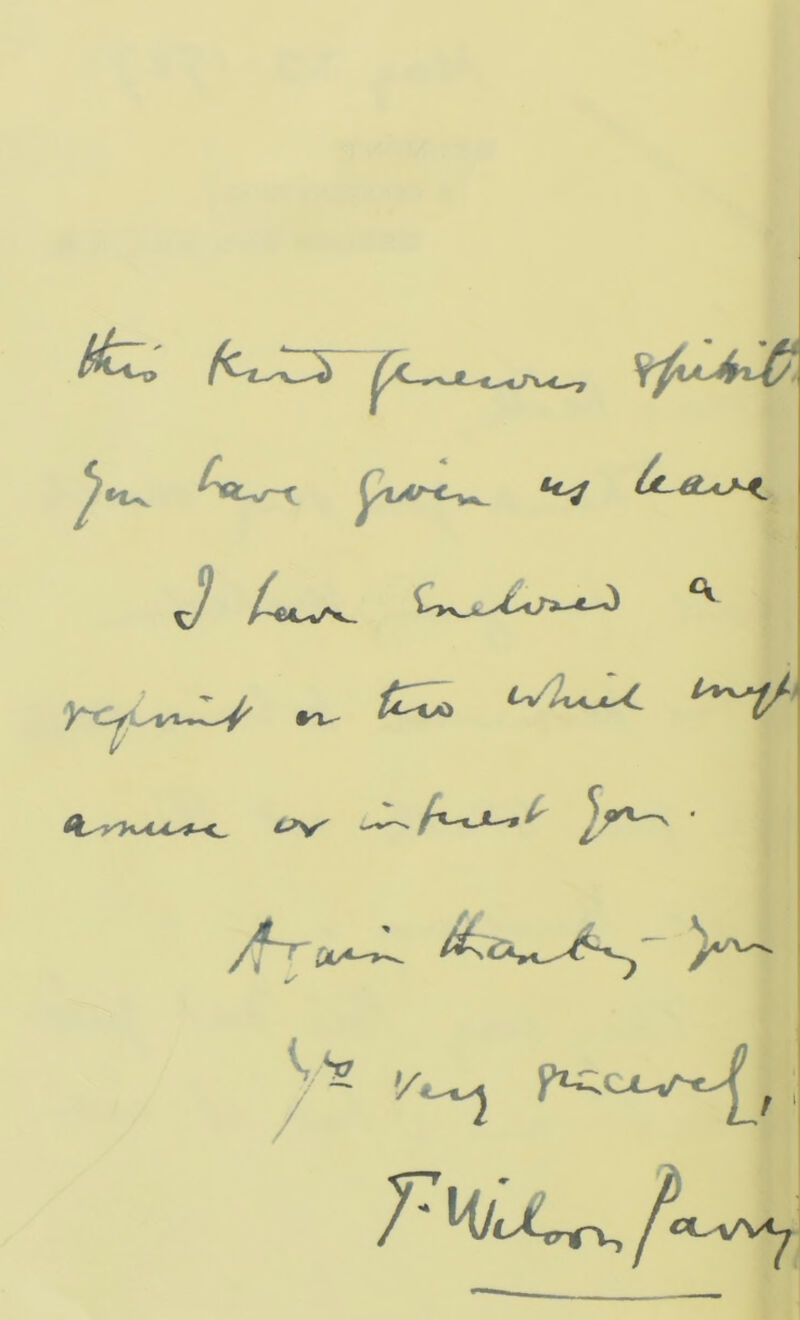 this kind generous spirit
you have given us leave
I have enclosed a
reprint or two which might
amuse or interest you.
Again thanking you
Yrs very sincerely,
T. Wilson Parry